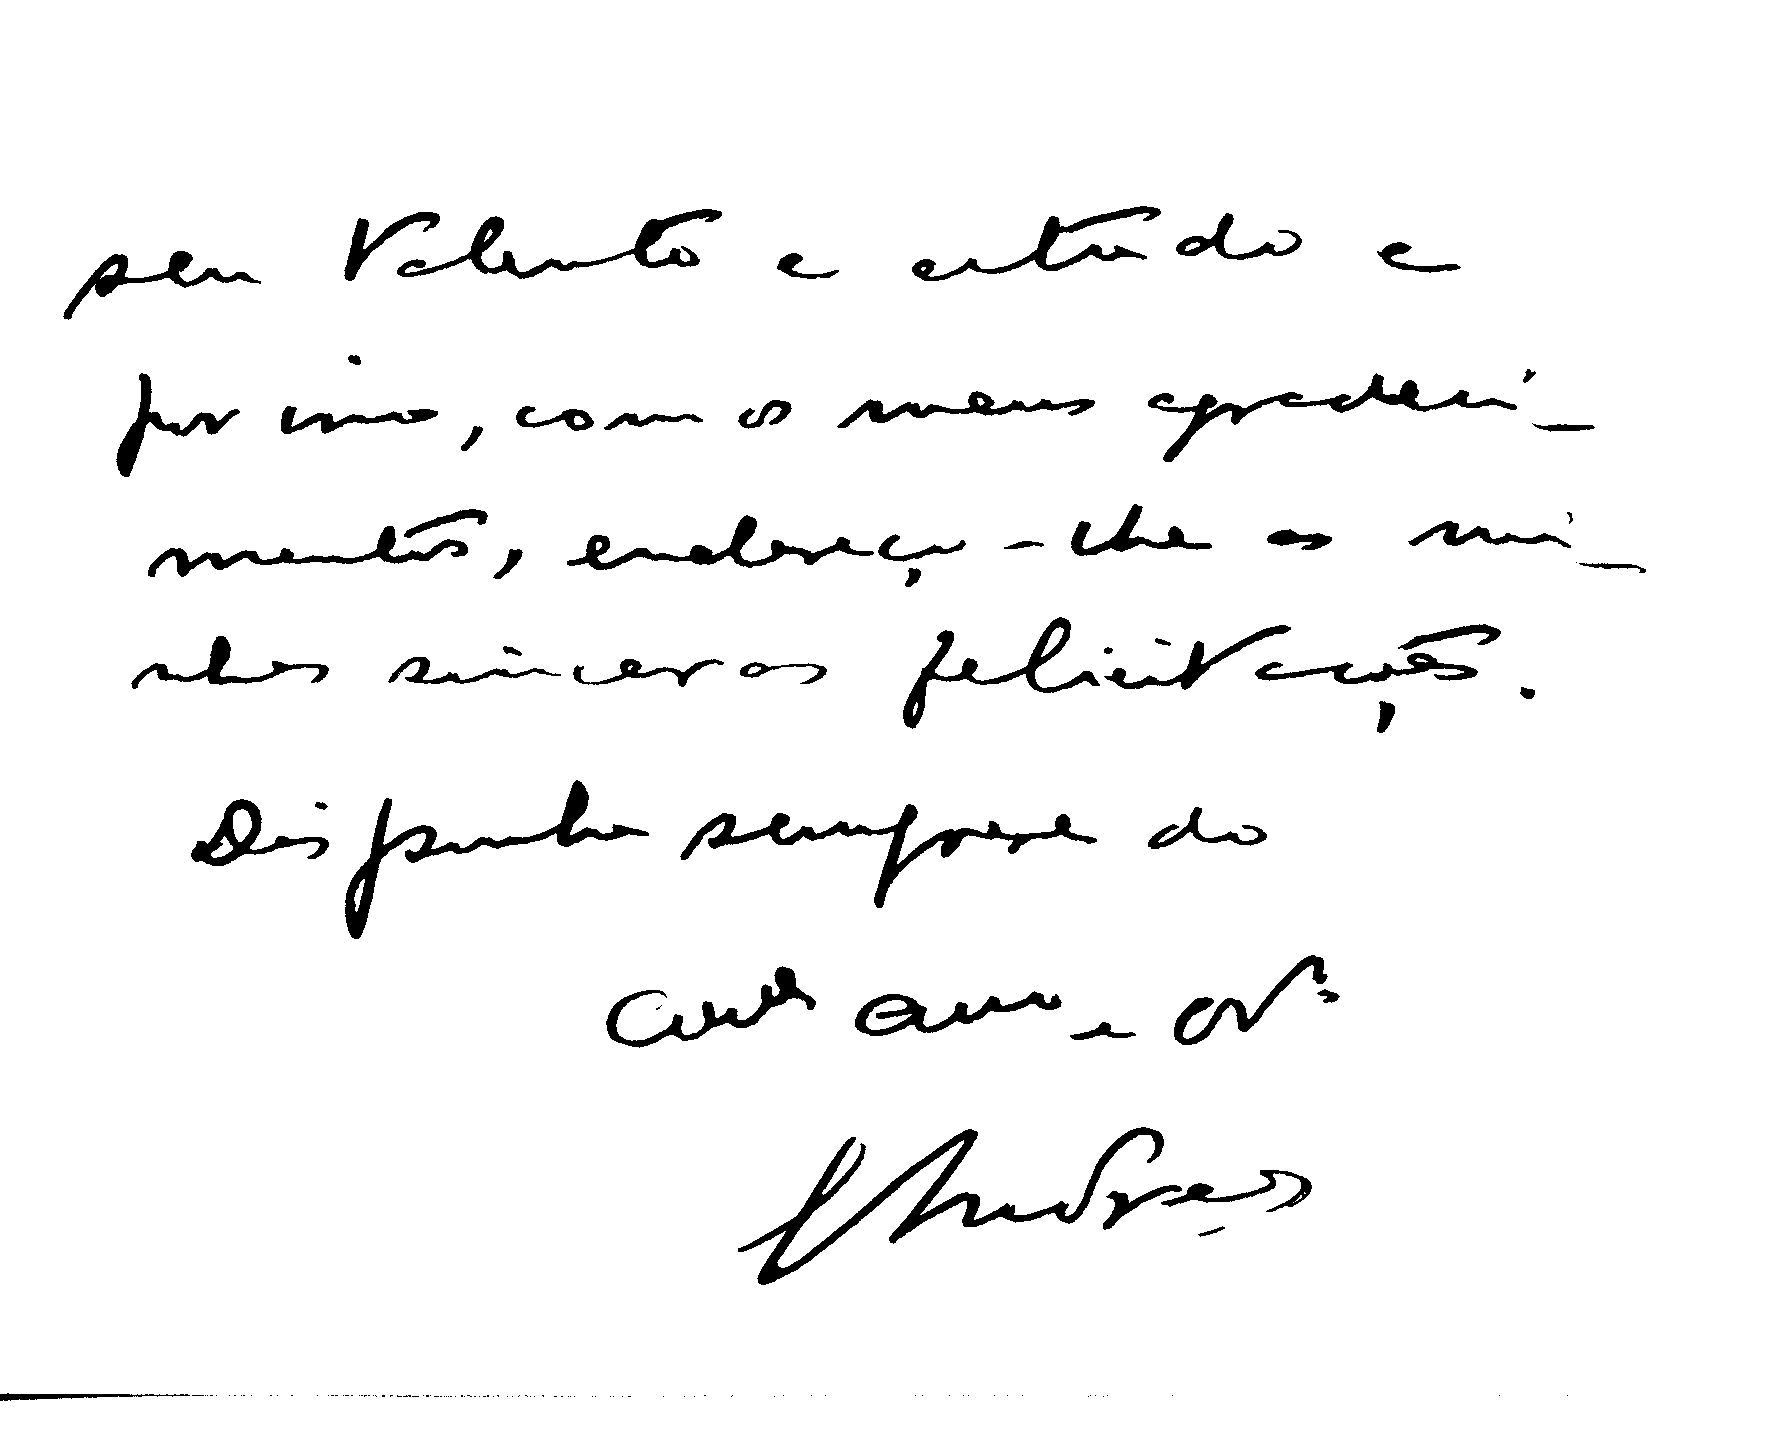 seu talento e estudo e
por isso, com os meus agradeci-
mentos, endereço-lhe as mi-
nhas sinceras felicitações.
Disponha sempre do
amo e